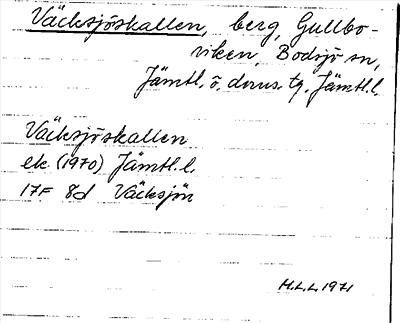 Väcksjöskallen, berg, Gullbo-
viken, Bodsjö sn,
Jämtl. ö. doms. tg, Jämtl.l.
Väcksjöskallen
ek (1970) Jämtl.l.
17F 8d Väcksjön
H.L.L 1971